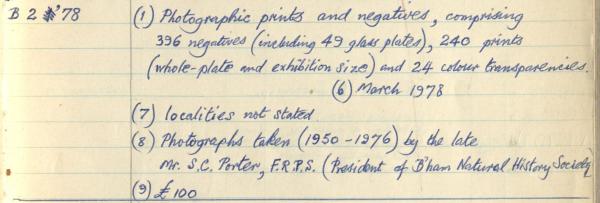 B 2 '78 (1) Photographic prints and negatives, comprising
396 negatives (including 49 glass plates), 240 prints
(whole-plate and exhibition size) and 24 colour transparencies.
(6) March 1978
(7) localities not stated
(8) Photographs taken (1950-1976) by the late
Mr. S.C. Porter, F.R.P.S. (President of B'ham Natural History Society)
(9) £100